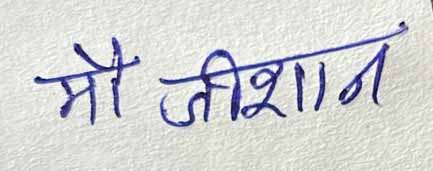 मौ जीशान